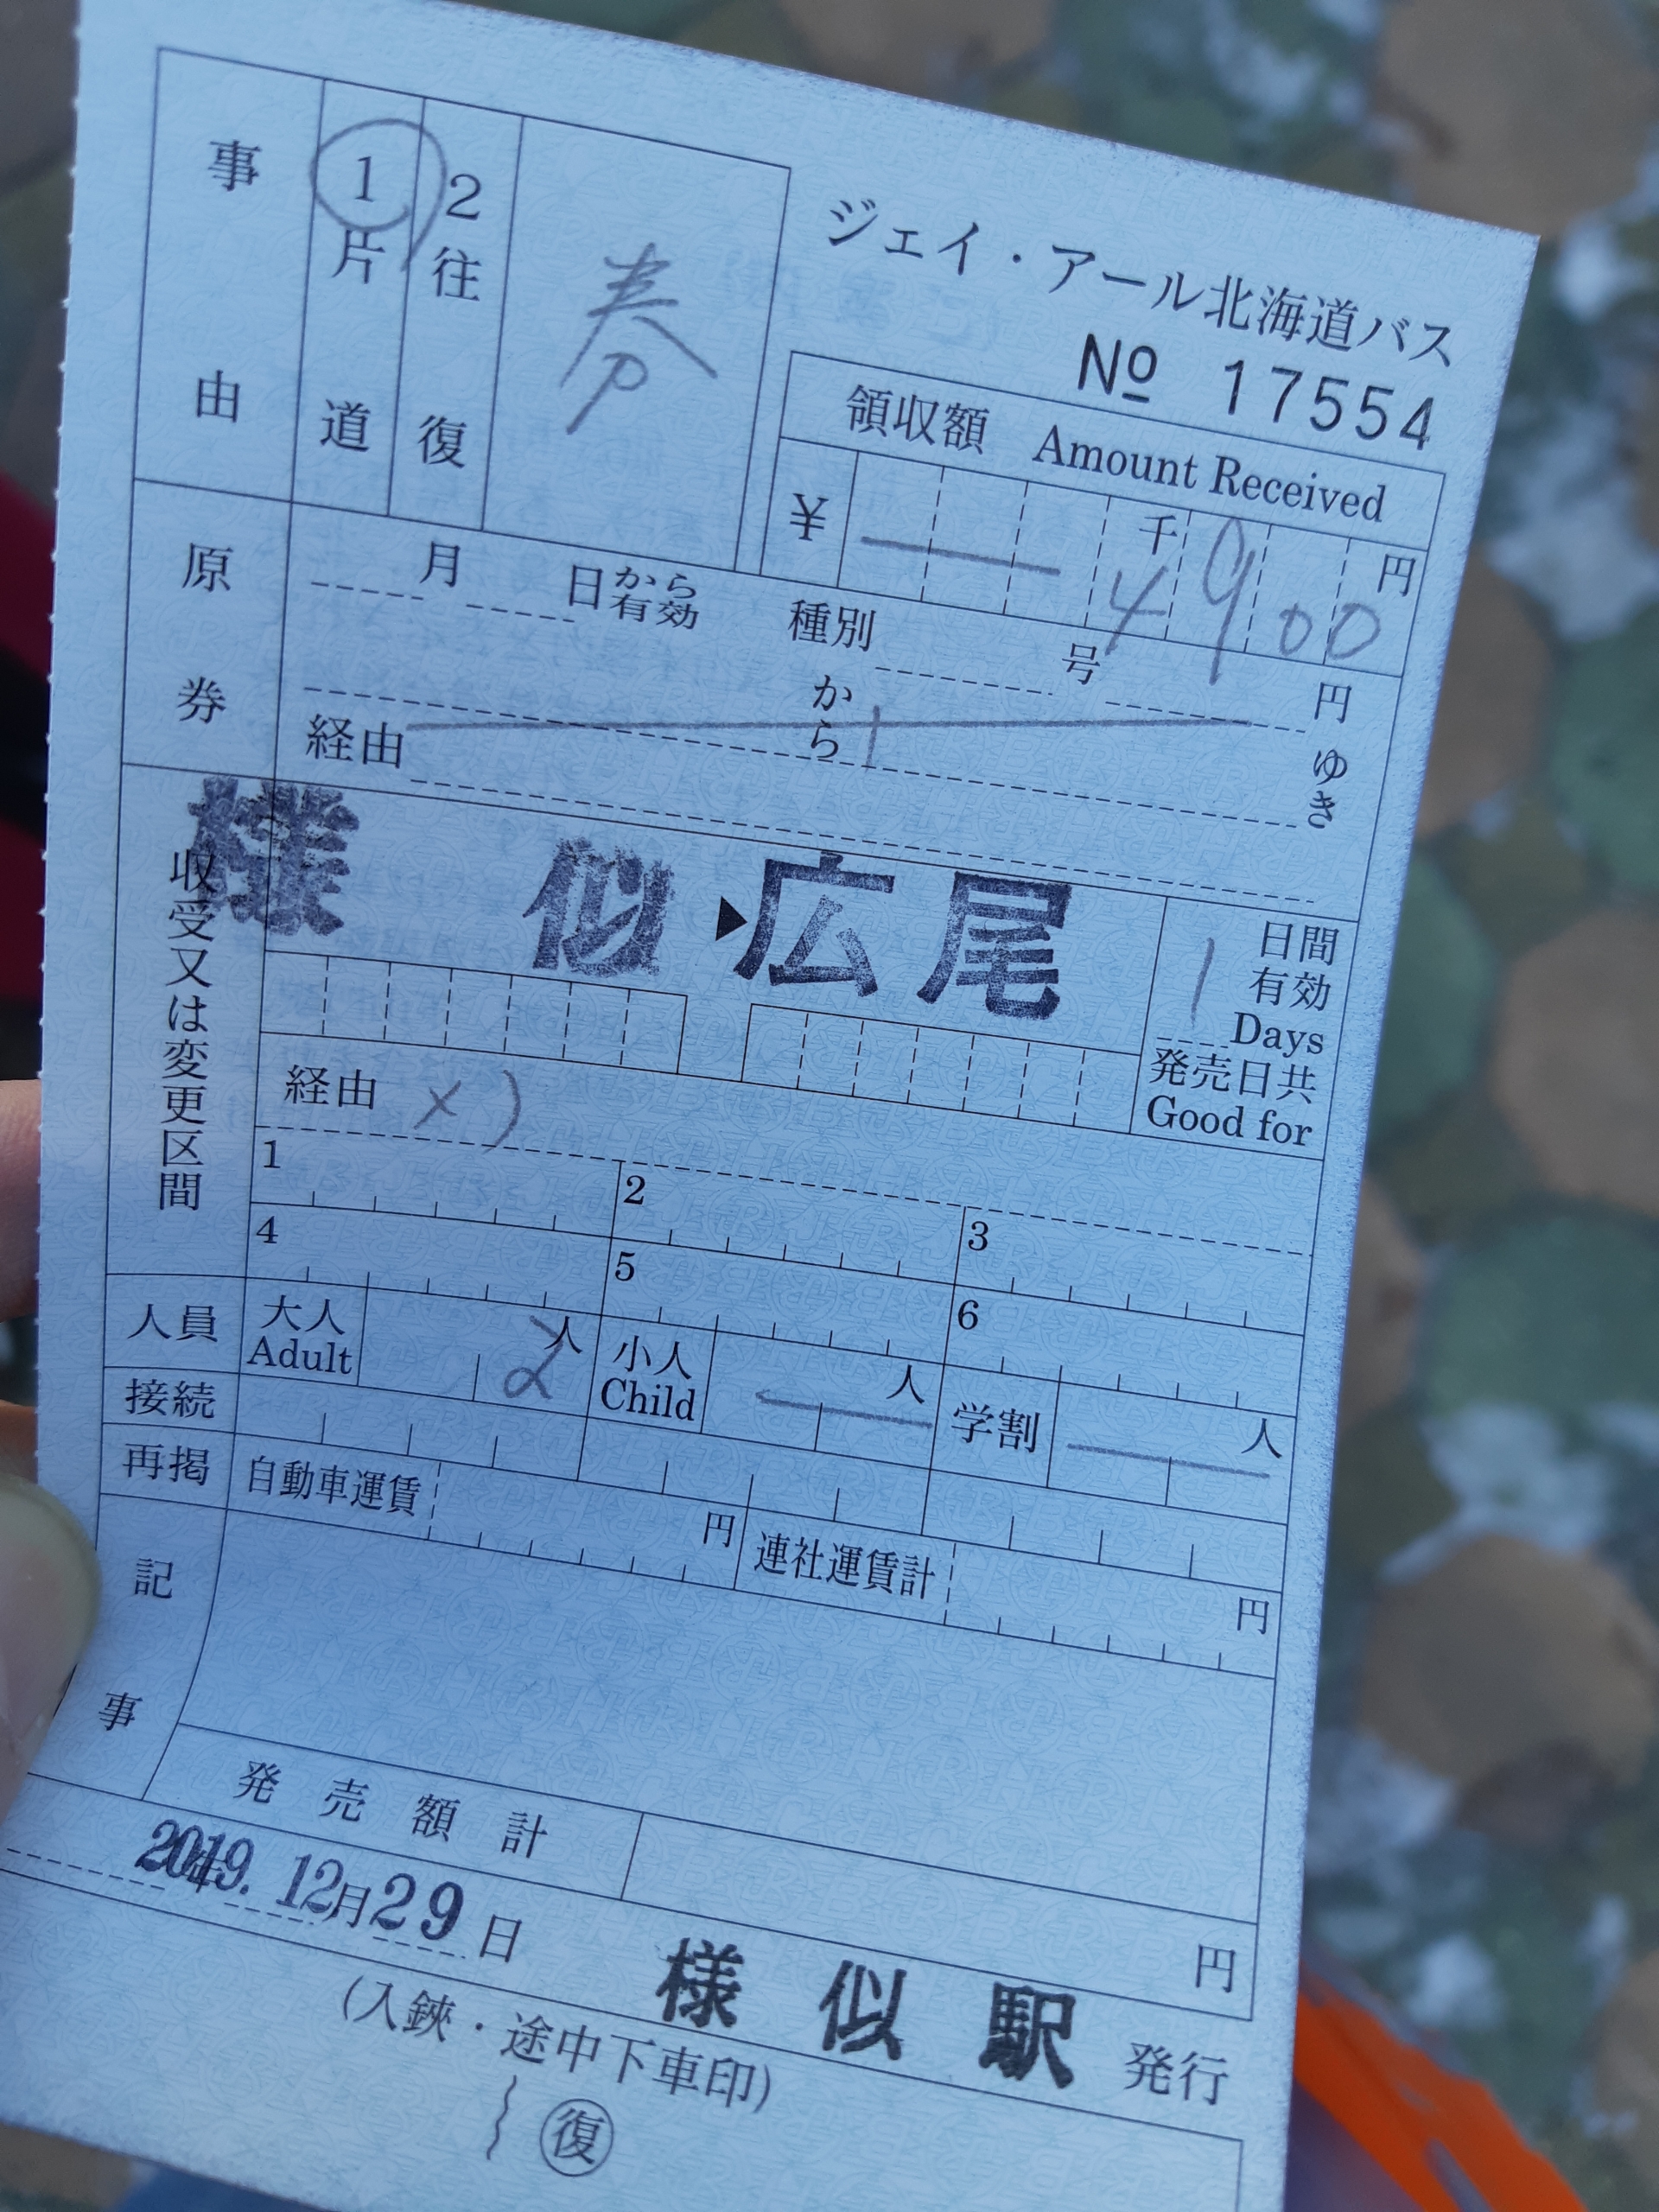 ジェイ・アール北海道バス
№ 17554
事由
1片道
2往復
券
領収額 Amount Received
¥ 千 円
4900
原券
月 日から有効 種別 号 円
から ゆき
経由
収受又は変更区間
様似▶広尾
1日間有効
Days
発売日共
Good for
経由
1 2 3
4 5 6
人員 大人 Adult 2人 小人 Child 人 学割 人
接続
再掲 自動車運賃 円 連社運賃計 円
記事
発売額計 円
2019.12月29日
様似駅 発行
(入鋏・途中下車印)
復